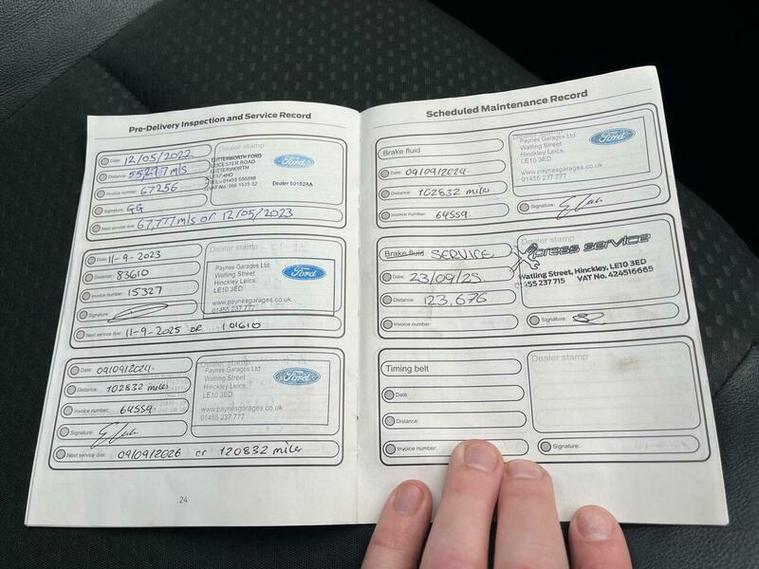 Pre-Delivery Inspection and Service Record
Date: 12/05/2022
Distance:
Invoice number: 67256
Signature: GG
Next service due: 67,777 mls or 12/05/2023
Dealer stamp
LUTTERWORTH FORD
LEICESTER ROAD
LUTTERWORTH
LE17 4HD
Ford
Dealer 50152AA
Date: 11-9-2023
Distance: 83610
Invoice number: 15327
Signature:
Next service due: 11-9-2025 OR 101610
Dealer stamp
Paynes Garages Ltd
Watling Street
Hinckley Leics.
LE10 3ED
www.paynesgarages.co.uk
01455 237 777
Ford
Date: 09/09/2024.
Distance: 102832 miles
Invoice number: 64559.
Signature:
Next service due: 09/09/2026 or 120832 miles
Dealer stamp
Paynes Garages Ltd
Watling Street
Hinckley Leics.
LE10 3ED
www.paynesgarages.co.uk
01455 237 777
Ford
24
Scheduled Maintenance Record
Brake fluid
Date: 09/09/2024.
Distance: 102832 miles
Invoice number: 64559.
Paynes Garages Ltd
Watling Street
Hinckley Leics.
LE10 3ED
www.paynesgarages.co.uk
01455 237 777
Ford
Signature:
Brake fluid SERVICE
Date: 23/09/25
Distance: 123,676
Invoice number:
Dealer stamp
Xpress service
Watling Street, Hinckley, LE10 3ED
01455 237 715 VAT No. 424516665
Signature:
Timing belt
Date:
Distance:
Invoice number:
Dealer stamp
Signature: